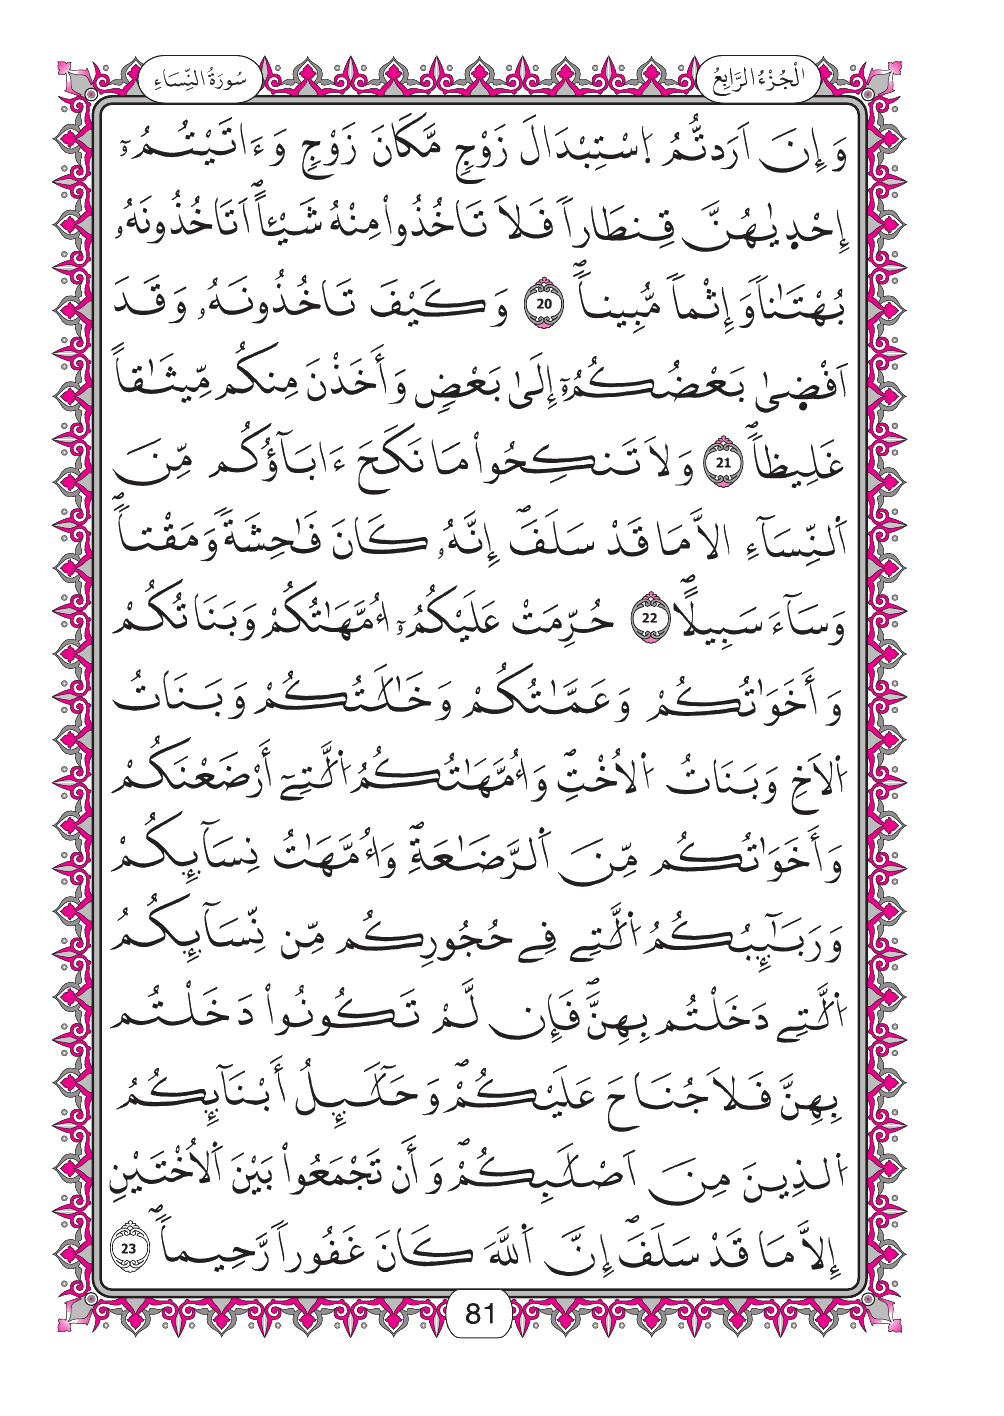 سُورَةُ النِّسَاءِ
الْجُزْءُ الرَّابِعُ
وَإِنَ اَرَدتُّمُ اُ۪سْتِبْدَالَ زَوْجٖ مَّكَانَ زَوْجٖ وَءَاتَيْتُمُۥٓ
إِحْد۪يٰهُنَّ قِنطَاراٗ فَلَا تَاخُذُواْ مِنْهُ شَيْـٔاًۖ اَتَاخُذُونَهُۥ
بُهْتَٰناٗ وَإِثْماٗ مُّبِيناٗۖ 20 وَكَيْفَ تَاخُذُونَهُۥ وَقَدَ
اَفْض۪يٰ بَعْضُكُمُۥٓ إِلَىٰ بَعْضٖ وَأَخَذْنَ مِنكُم مِّيثَٰقاً
غَلِيظاٗۖ 21 وَلَا تَنكِحُواْ مَا نَكَحَ ءَابَآؤُكُم مِّنَ
اَ۬لنِّسَآءِ الَّا مَا قَدْ سَلَفَۖ إِنَّهُۥ كَانَ فَٰحِشَةٗ وَمَقْتاٗۖ
وَسَآءَ سَبِيلًاۖ 22 حُرِّمَتْ عَلَيْكُمُۥٓ أُمَّهَٰتُكُمْ وَبَنَاتُكُمْ
وَأَخَوَٰتُكُمْ وَعَمَّٰتُكُمْ وَخَٰلَٰتُكُمْ وَبَنَاتُ
اُ۬لَاخِ وَبَنَاتُ اُ۬لُاخْتِۖ وَأُمَّهَٰتُكُمُ اُ۬لَّٰتِےٓ أَرْضَعْنَكُمْ
وَأَخَوَٰتُكُم مِّنَ اَ۬لرَّضَٰعَةِۖ وَأُمَّهَٰتُ نِسَآئِكُمْ
وَرَبَٰٓئِبُكُمُ اُ۬لَّٰتِے فِے حُجُورِكُم مِّن نِّسَآئِكُمُ
اُ۬لَّٰتِے دَخَلْتُم بِهِنَّۖ فَإِن لَّمْ تَكُونُواْ دَخَلْتُم
بِهِنَّ فَلَا جُنَاحَ عَلَيْكُمْۖ وَحَلَٰٓئِلُ أَبْنَآئِكُمُ
اُ۬لذِينَ مِنَ اَصْلَٰبِكُمْۖ وَأَن تَجْمَعُواْ بَيْنَ اَ۬لُاخْتَيْنِ
إِلَّا مَا قَدْ سَلَفَۖ إِنَّ اَ۬للَّهَ كَانَ غَفُوراٗ رَّحِيماٗۖ 23
81